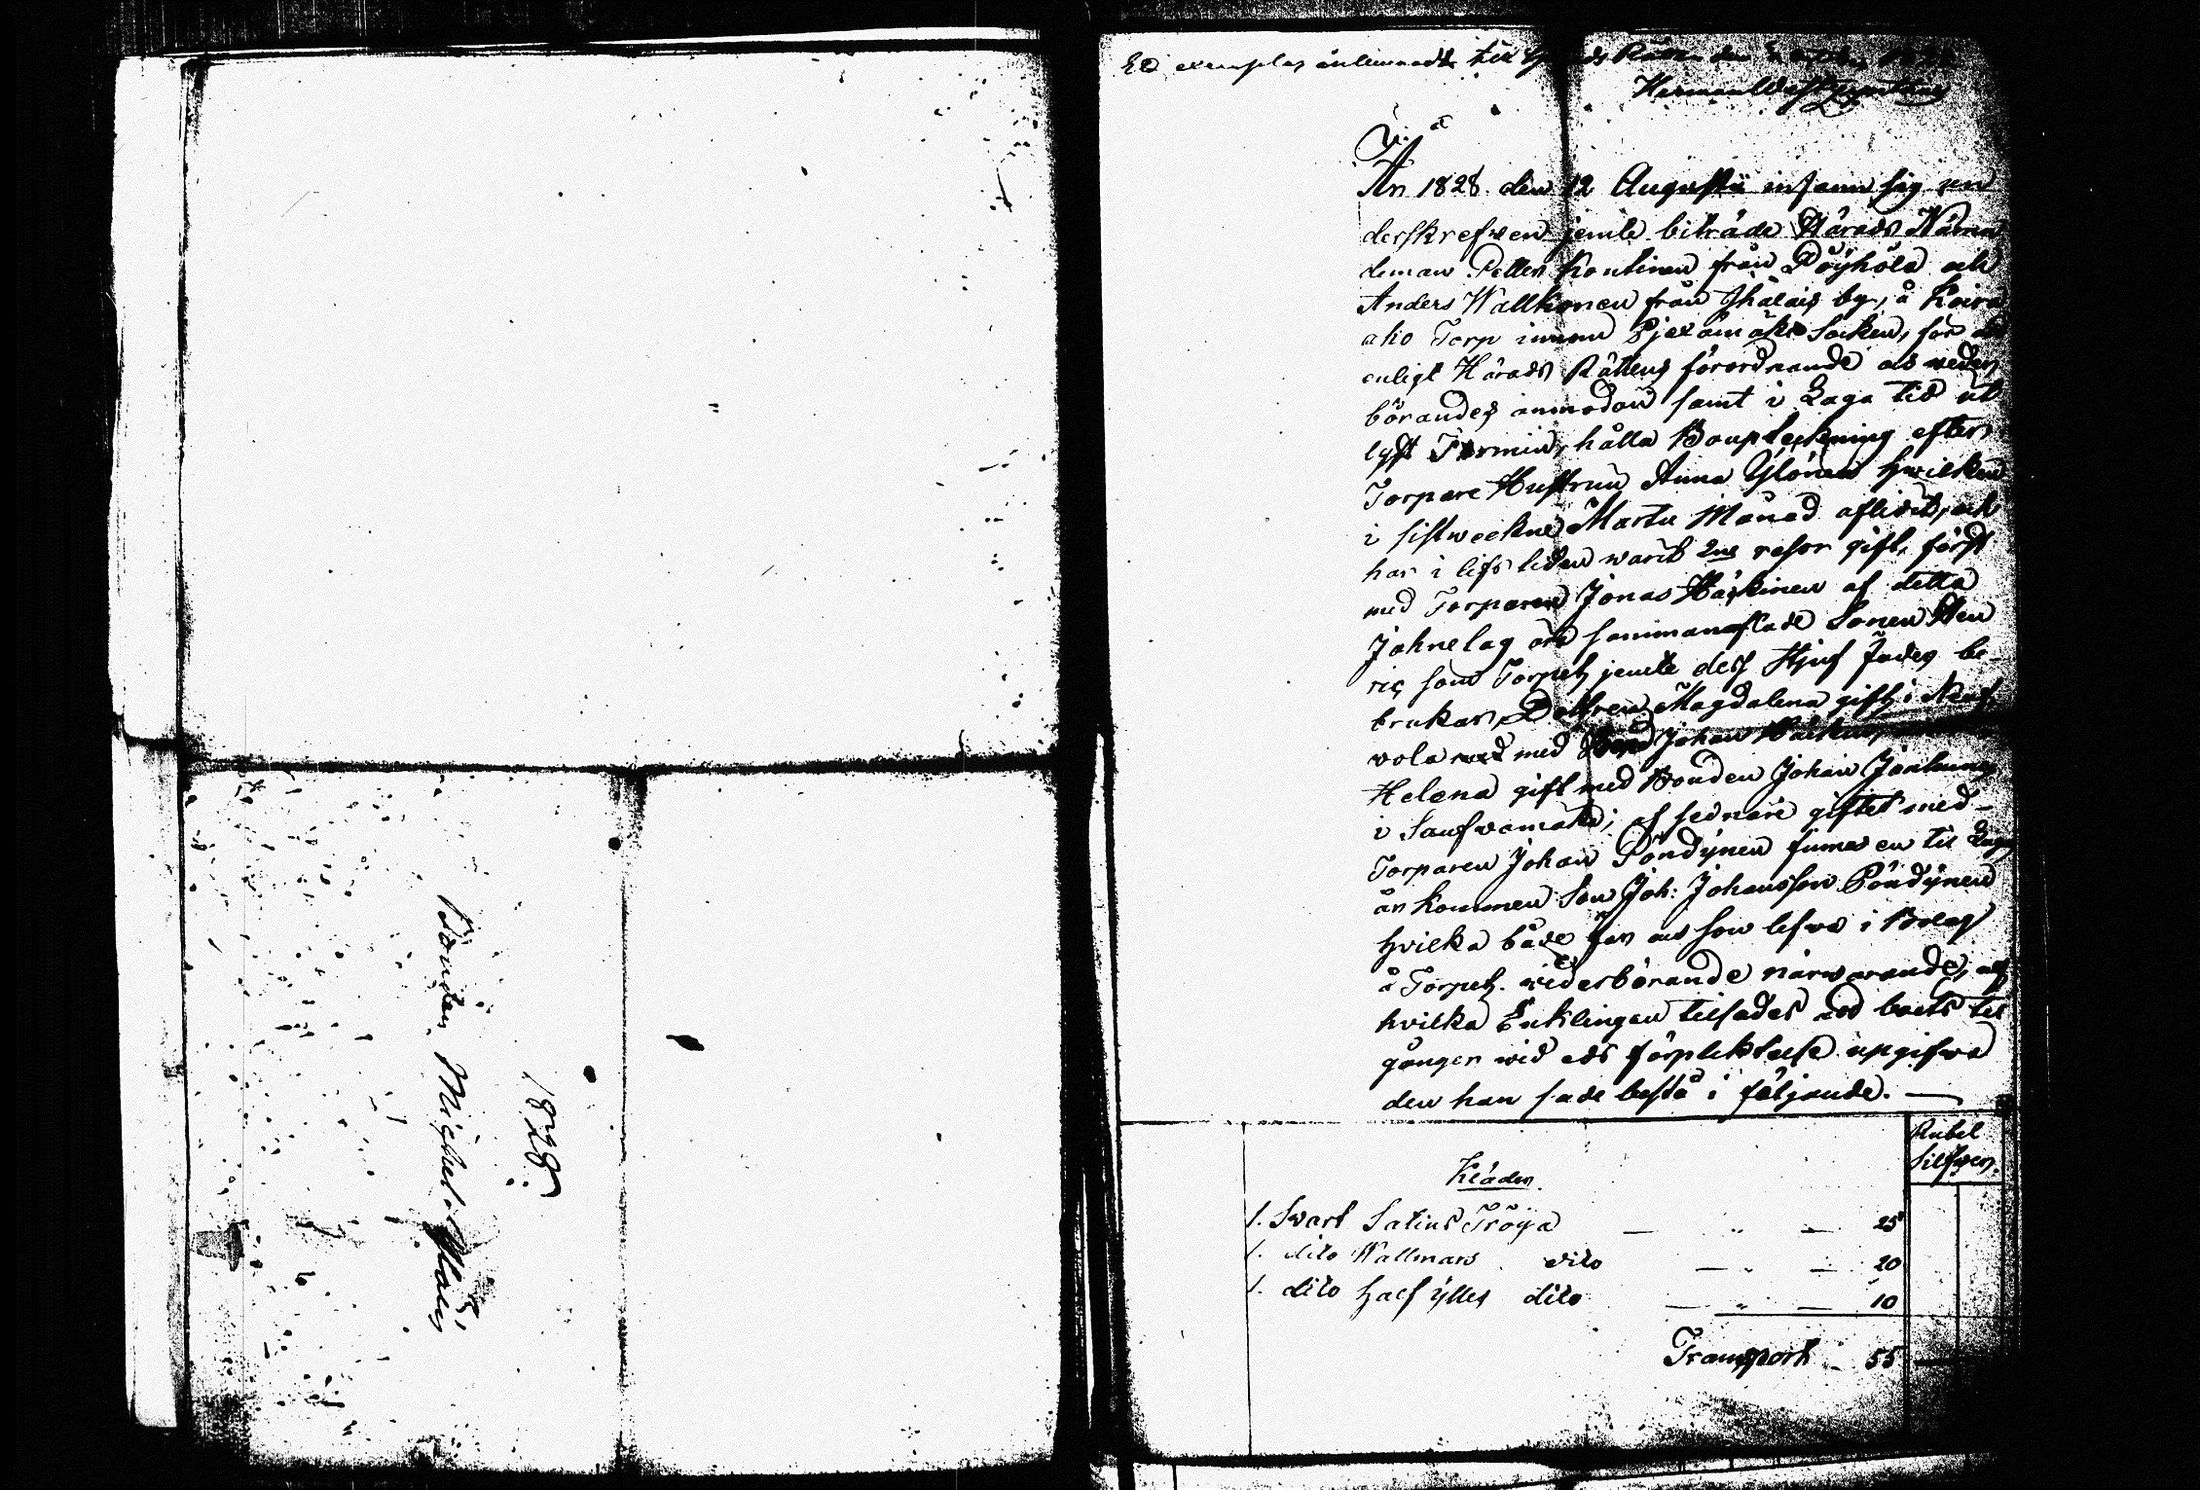 Bonden Michel
1828.
Ett exemplar inlemnadt till Härads Rätten den
V. a
År 1828 den 12 Augusti infann sig un
derskrefven jemte biträde Härads Nämn
deman Petter Kontinen från Pöyhölä och
Anders Wallkonen från Ihalais by, å Koira
aho Torp innom Pjexämäki Socken, för att
enligt Härads Rättens förordnande och veder
börandes anmodan samt i Laga tid ut
lyst Termin, hålla Boupteckning efter
Torpare Hustrun Anna Ylönen hvilken
i sistwekne Martii Månad aflidit, och
har i lifstiden warit 2ne resor gift, först
med Torparen Jonas Häkinen af detta
Johnelag äro sammanaflade Sonen Hen
ric som Torpet jemte dess
brukar, Dottren Magdalena gift i
vola med Johan
Helena gift med Bonden Johan
i af sednare giftet med
Torparen Johan Pöndynen finnes en til Laga
år kommen Son Joh: Johansson Pöndynen
hvilka både far och son lefva i Bolag
å Torpet. vederbörande närwarande, af
hvilka Enklingen tilsades at boets til
gångar wid eds förpliktelse upgifva
den han sade bestå i följande. —
Rubel
Silfwer
Kläder
1. Svart Satins Tröya — " — 25
1. dito Wallmars dito — " — 20
1. dito half ylles dito — " — 10
Transport — 55